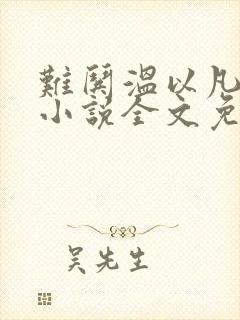 難鬨溫以凡
小說全文免
吴先生